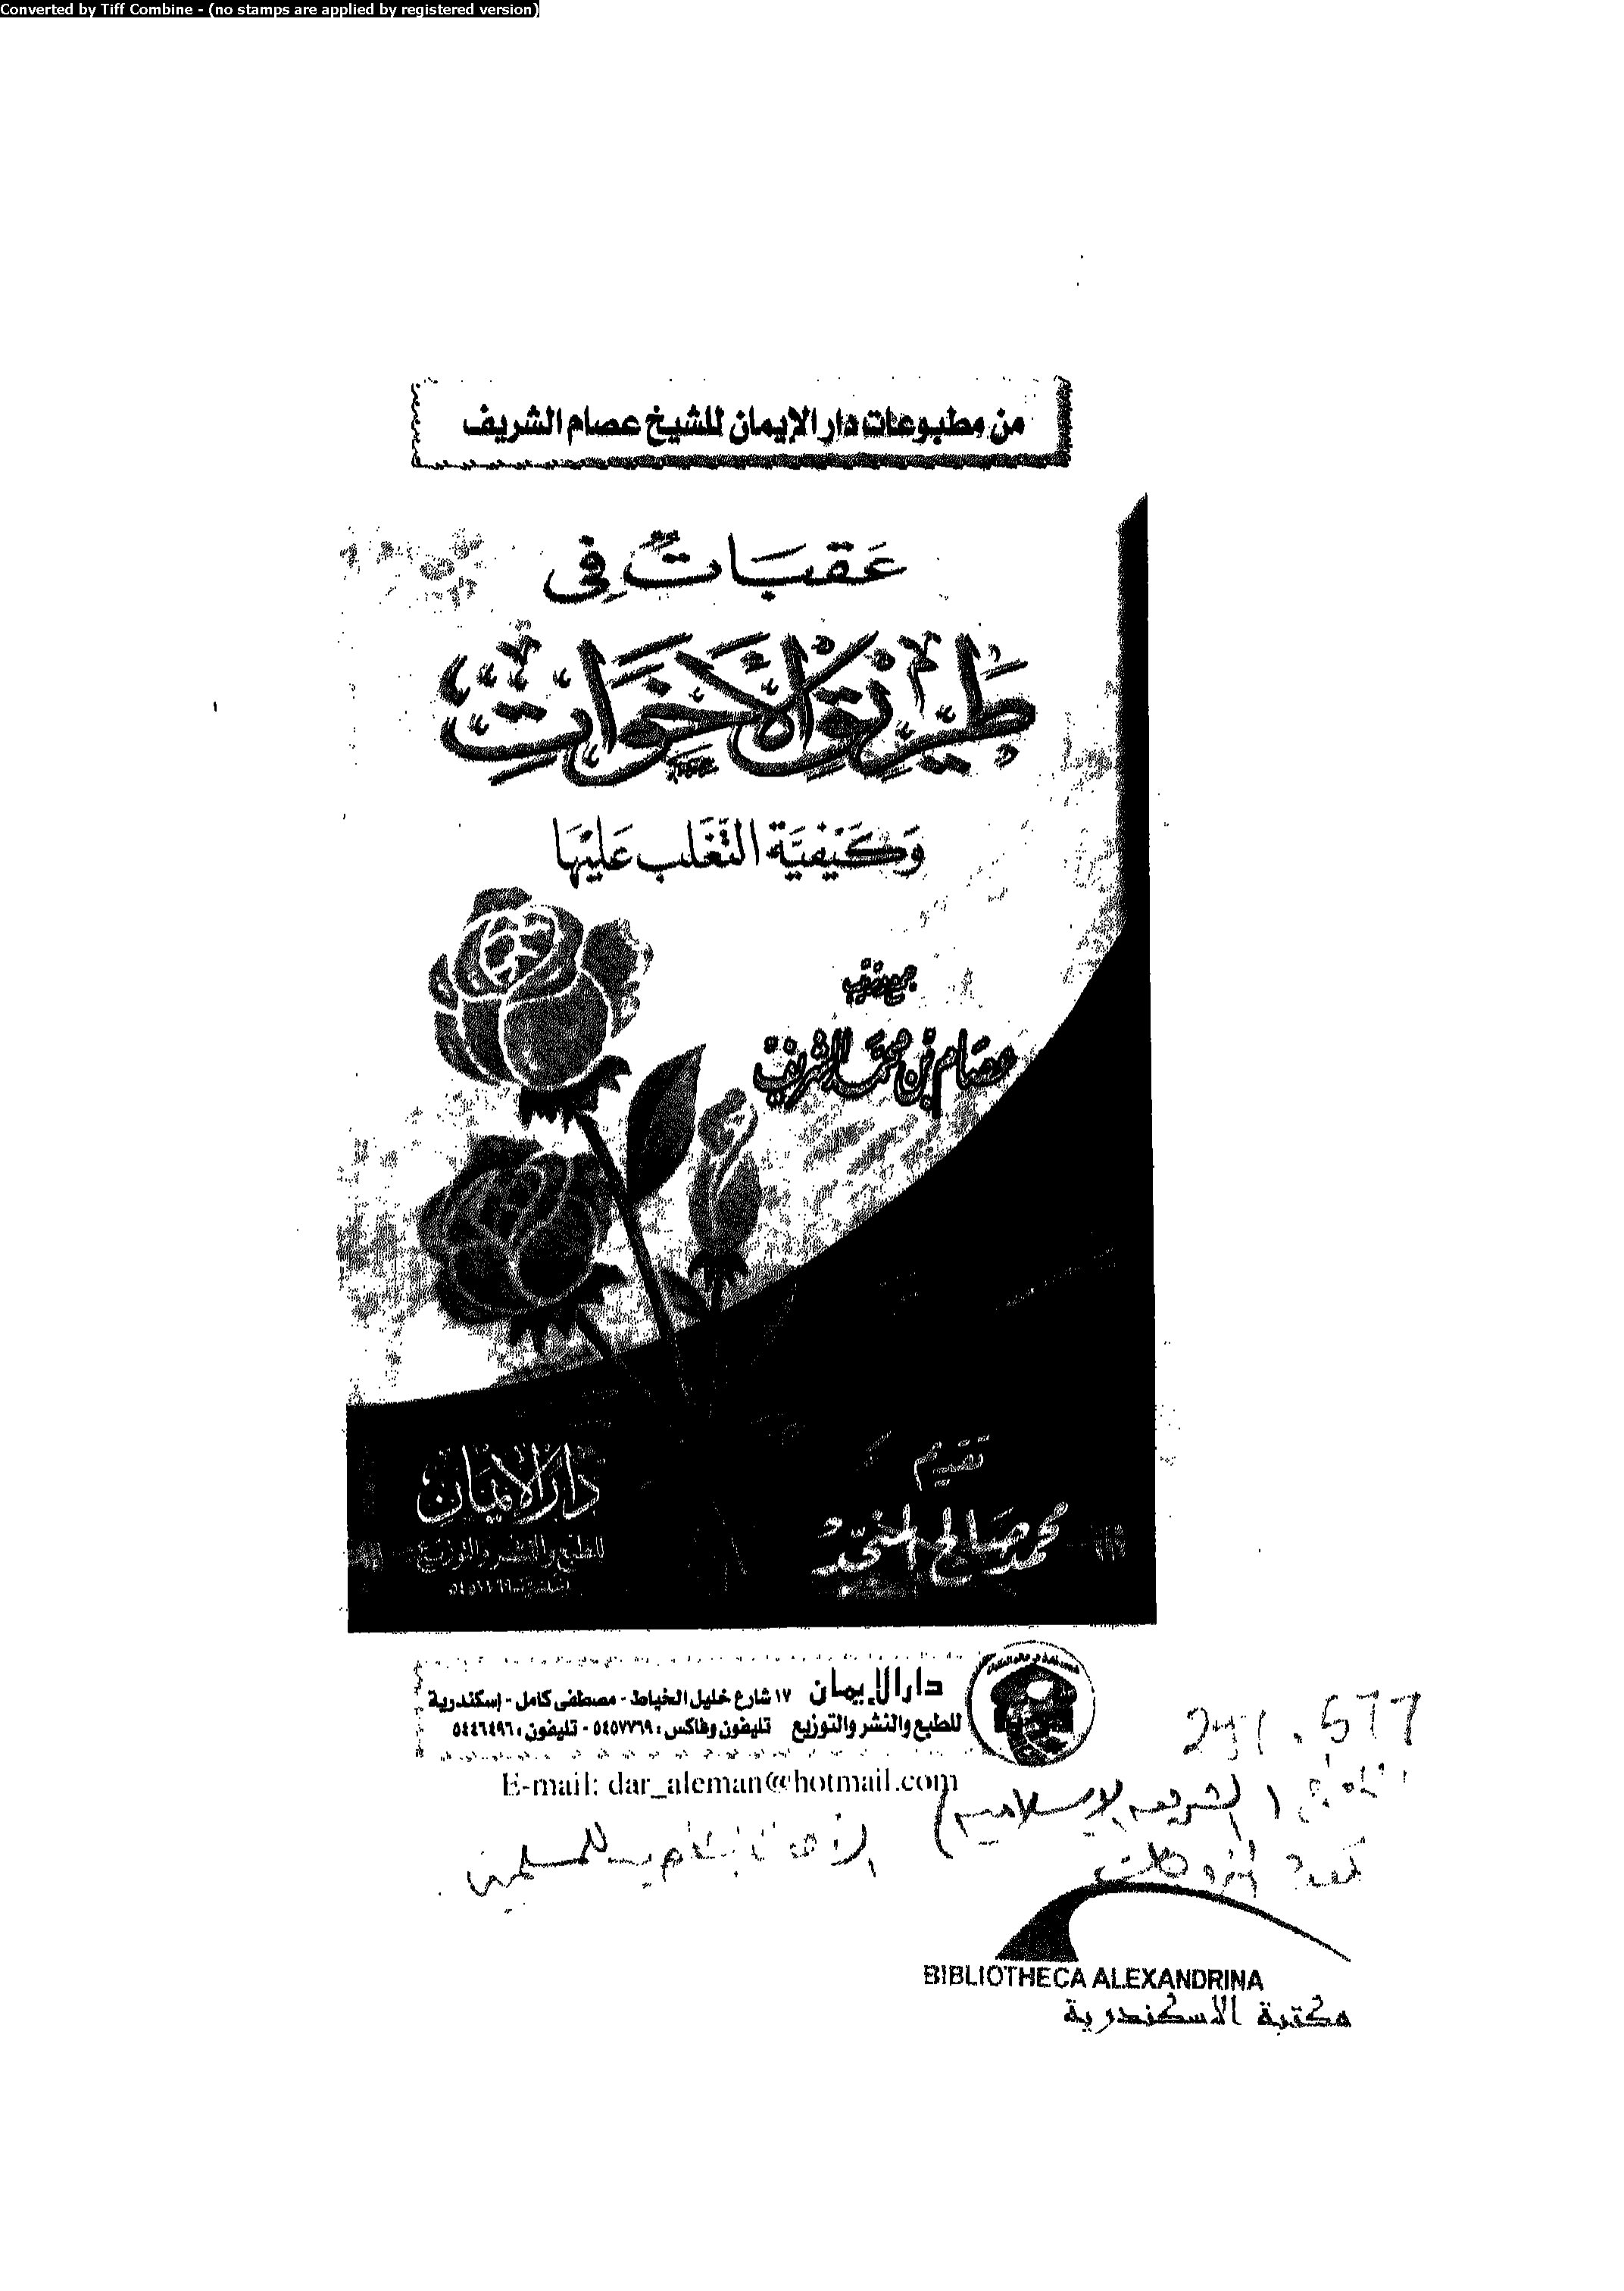 Converted by Tiff Combine - (no stamps are applied by registered version)
من مطبوعات دار الإيمان للشيخ عصام الشريف
عَقَبَاتٌ فِى
طَرِيقِ الأَخَوَاتِ
وَكَيْفِيَّة التَّغَلُب عَلَيْهَا
عصام بن محمد الشريف
تقديم
محمد صالح المنجد
دار الإيمان
للطبع والنشر والتوزيع
دار الإيمان ١٧ شارع خليل الخياط - مصطفى كامل - إسكندرية
للطبع والنشر والتوزيع تليفون وفاكس : ٥٤٥٧٧٦٩ - تليفون : ٥٤٤٦٤٩٦
E-mail: dar_aleman@hotmail.com
الشريعة الإسلامية
للمسلمين
BIBLIOTHECA ALEXANDRINA
مكتبة الاسكندرية